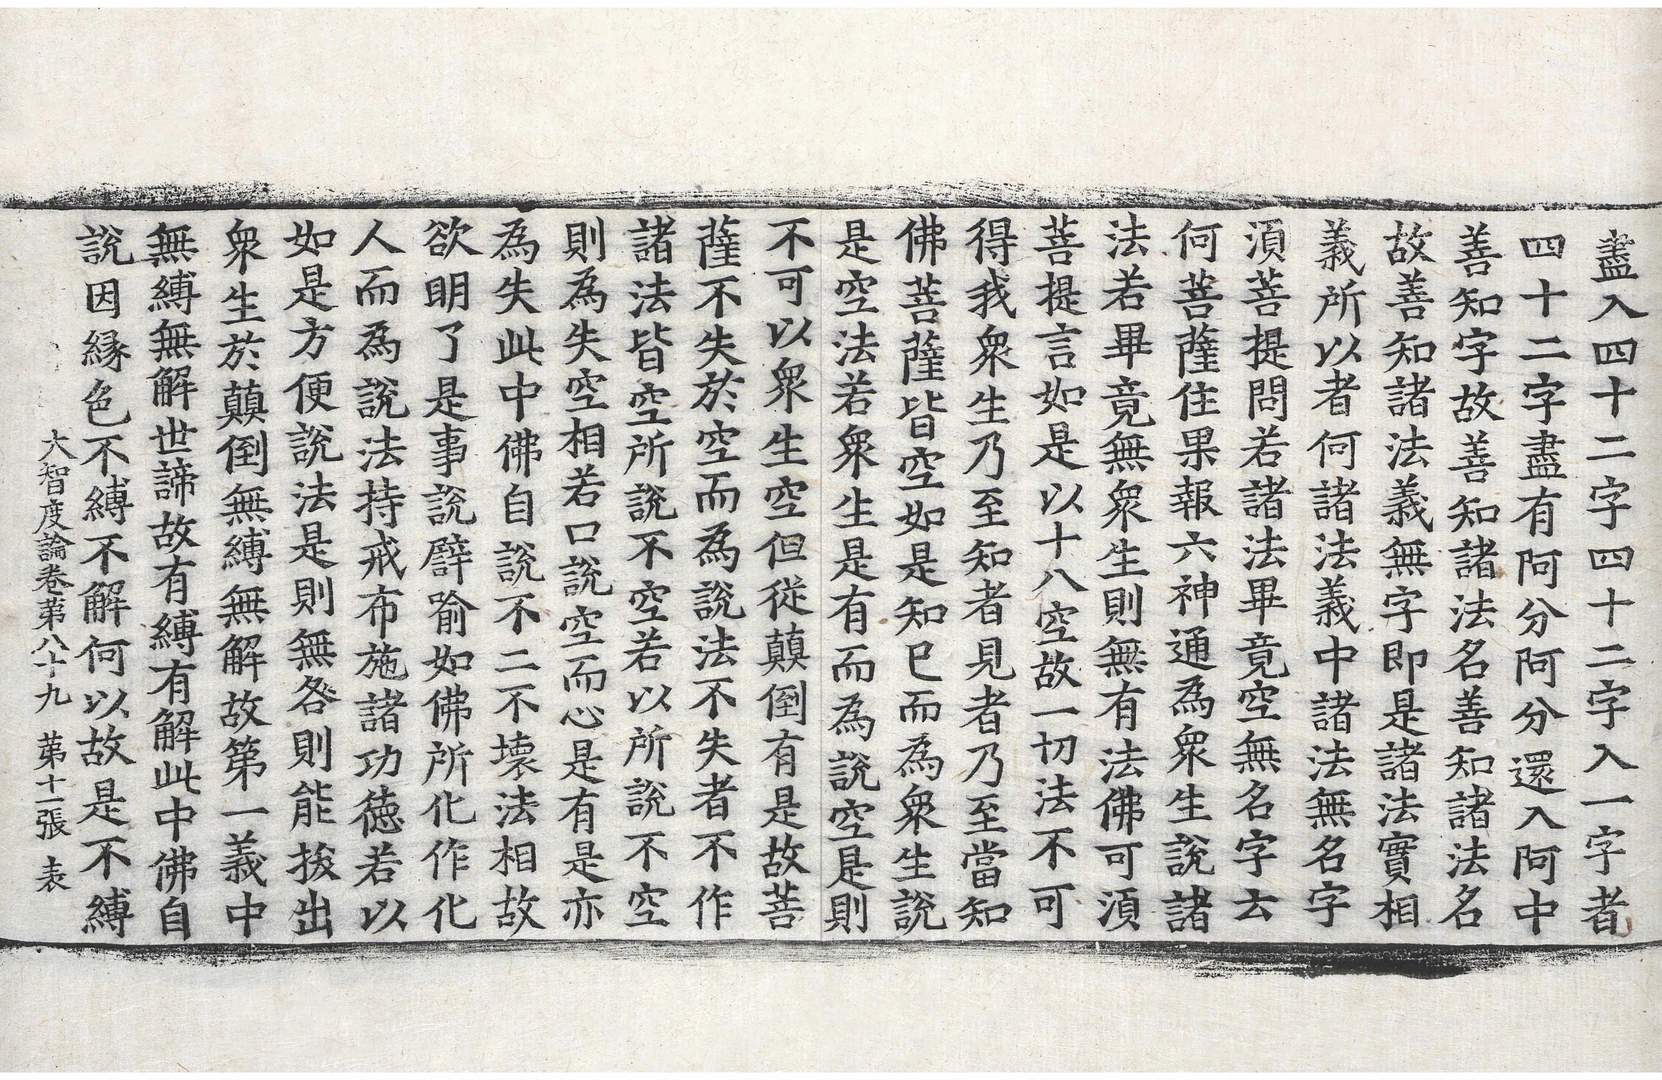 盡入四十二字四十二字入一字者
四十二字盡有阿分阿分還入阿中
善知字故善知諸法名善知諸法名
故善知諸法義無字即是諸法實相
義所以者何諸法義中諸法無名字
湏菩提問若諸法畢竟空無名字云
何菩薩住果報六神通為衆生說諸
法若畢竟無衆生則無有法佛可湏
菩提言如是以十八空故一切法不可
得我衆生乃至知者見者乃至當知
佛菩薩皆空如是知已而為衆生說
是空法若衆生是有而為說空是則
不可以衆生空但從顛倒有是故菩
薩不失於空而為說法不失者不作
諸法皆空所說不空若以所說不空
則為失空相若口說空而心是有是亦
為失此中佛自說不二不壞法相故
欲明了是事說譬喻如佛所化作化
人而為說法持戒布施諸功德若以
如是方便說法是則無咎則能拔出
衆生於顛倒無縛無解故第一義中
無縛無解世諦故有縛有解此中佛自
說因緣色不縛不解何以故是不縛
大智度論卷第八十九 第十一張 表